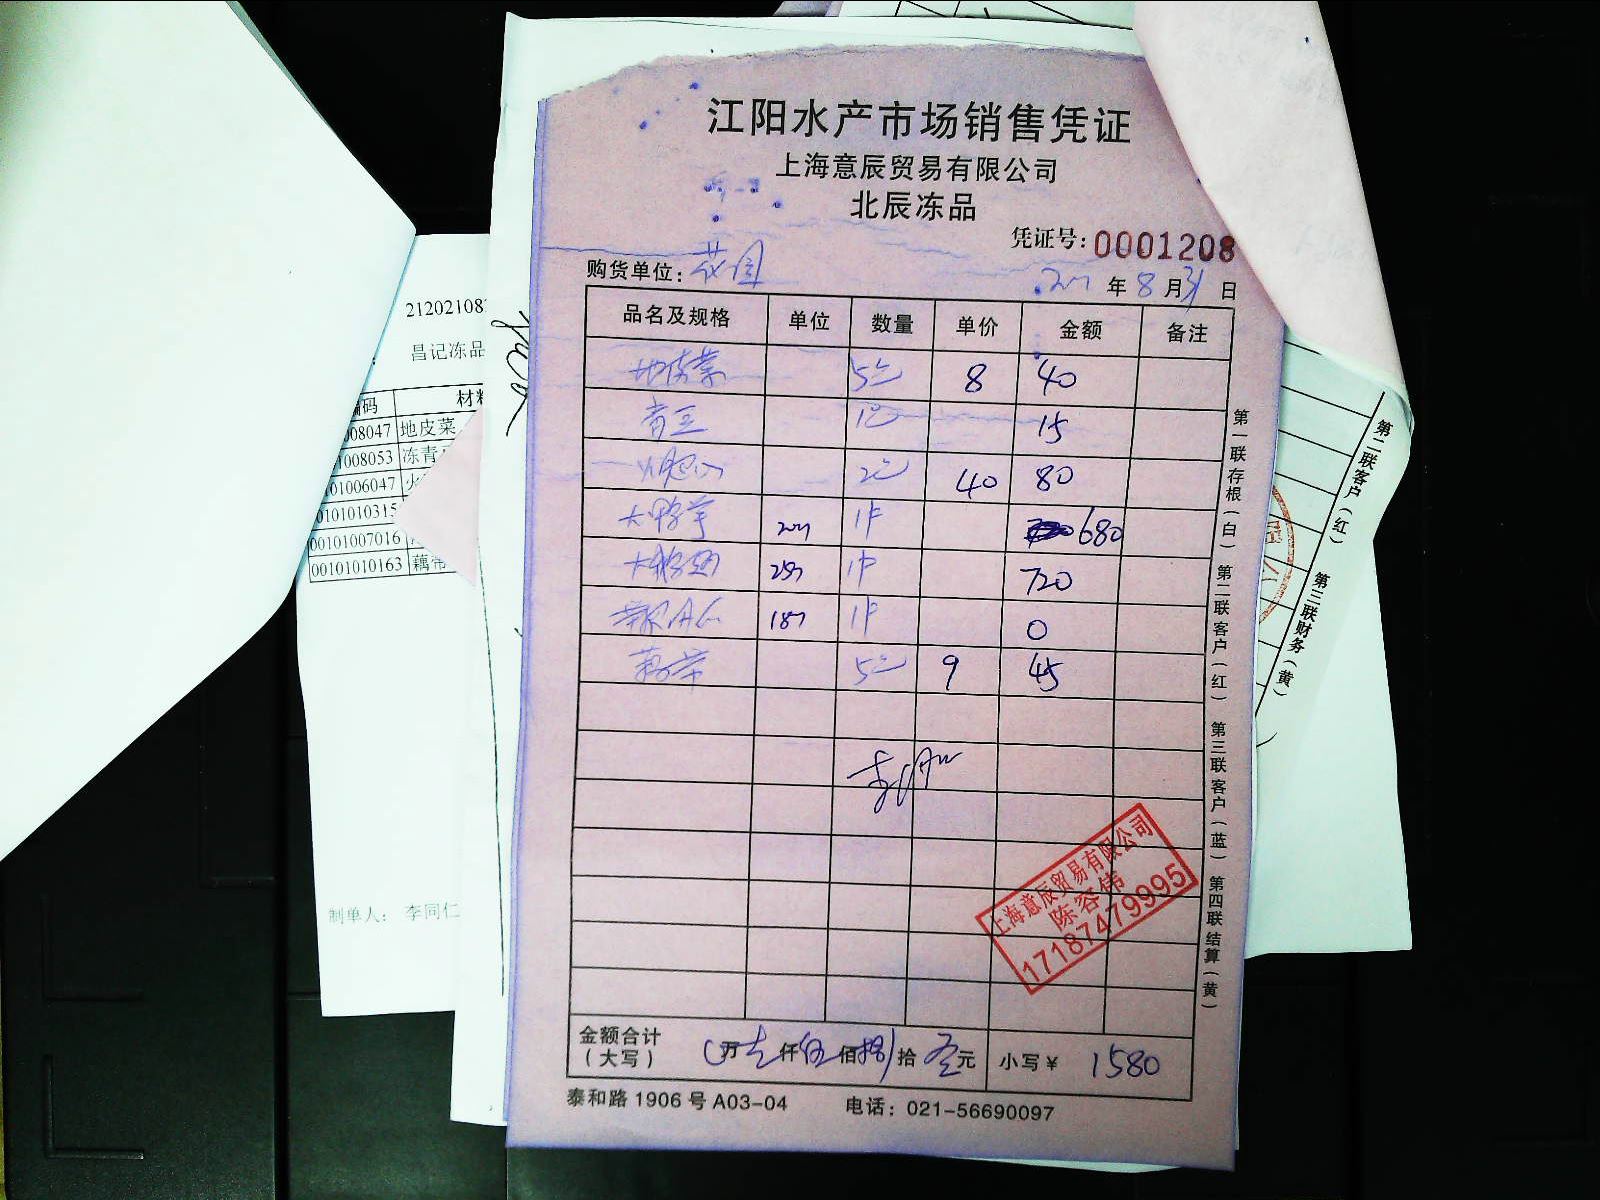 江阳水产市场销售凭证
上海意辰贸易有限公司
北辰冻品
凭证号:0001208
购货单位:花园
年8月31日
品名及规格 单位 数量 单价 金额 备注
地皮菜 5包 8 40
青豆 1包 15
2包 40 80
1件 680
1件 720
1件 0
藕带 5包 9 45
上海意辰贸易有限公司
陈容伟
17187479995
金额合计
(大写) 万 仟伍佰捌拾 元 小写¥ 1580
泰和路1906号A03-04 电话:021-56690097
第一联存根(白) 第二联客户(红) 第三联客户(蓝) 第四联结算(黄)
21202108
昌记冻品
编码 材料
008047 地皮菜
1008053 冻青
101006047 火
0101010315
00101007016
00101010163 藕带
制单人: 李同仁
第二联客户(红) 第三联财务(黄)